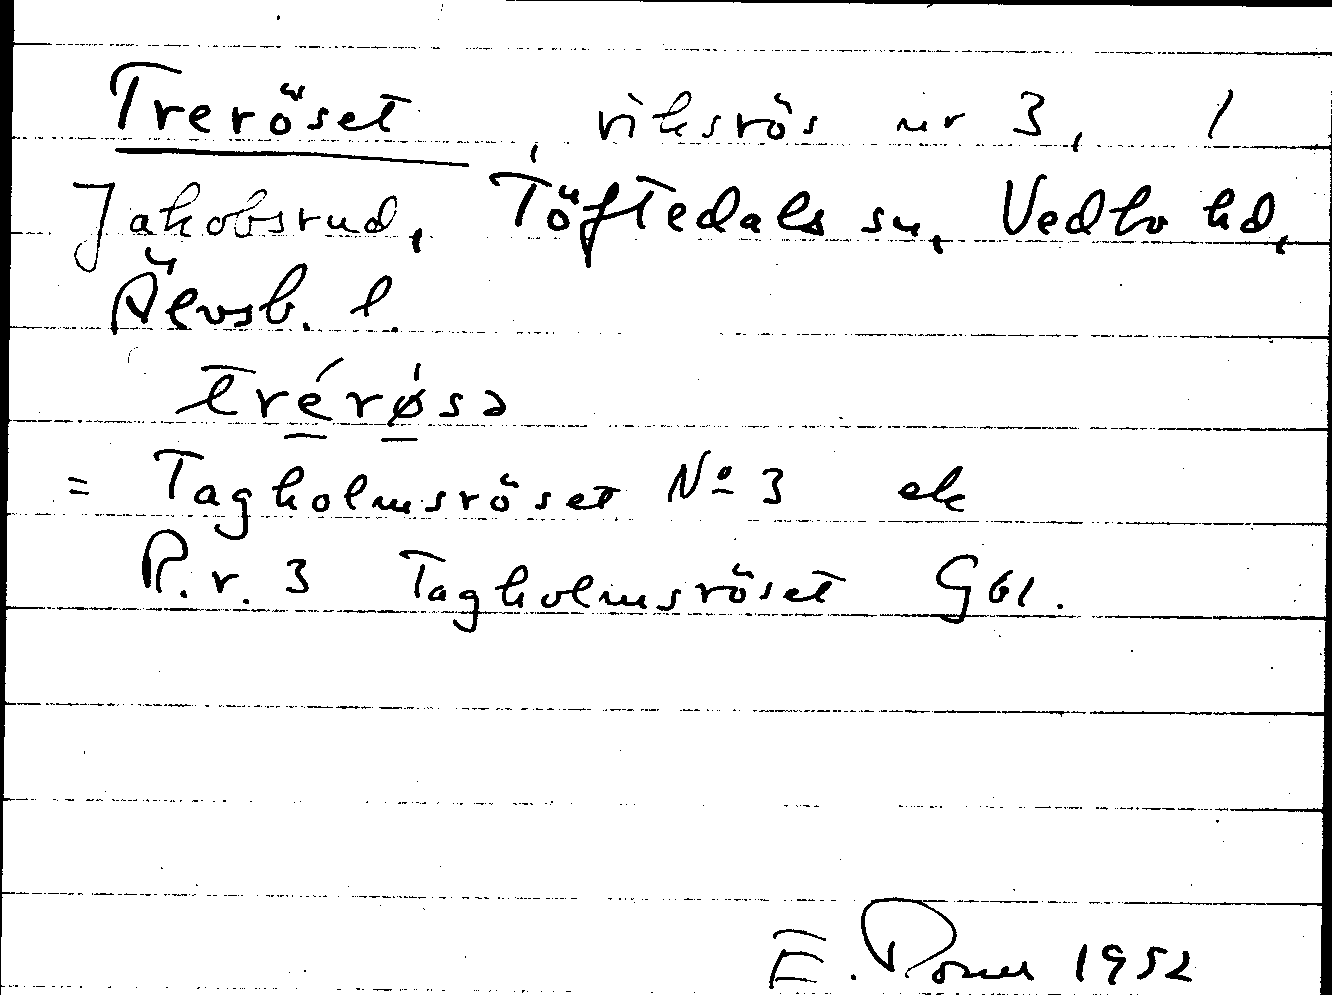 Treröset, riksrös nr 3, 1
Jakobsrud, Töftedals sn, Vedbo hd,
Älvsb. l.
trérǿsə
= Tagholmsröset No 3 ek
R.r. 3 Tagholmsröset G61.
E. 1952